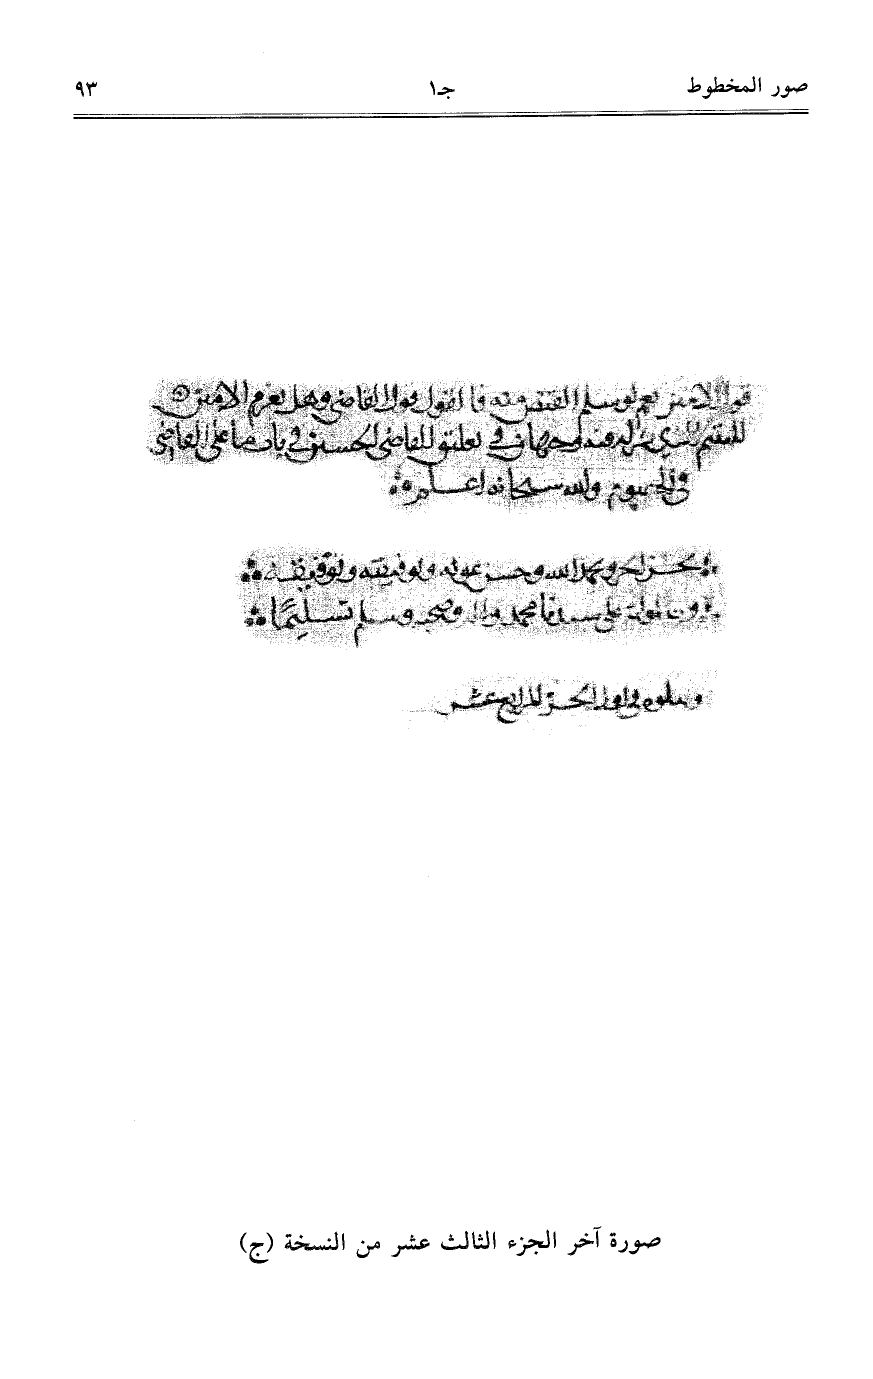 صور المخطوط جـ١ ٩٣
قول الامين نعم لو سلم القبض منه فالقول قول القاضي وهل يغرم الامين
للمقيم الذي منه وجهان في تعليق للقاضي الحسين في باب ما على القاضي
في الخصوم والله سبحانه اعلم
نجز الجزو بحمد الله وحسن عونه وتوفيقه
على سيدنا محمد واله وصحبه وسلم تسليمًا
ويتلوه في اول الجزء الرابع عشر
صورة آخر الجزء الثالث عشر من النسخة (ج)